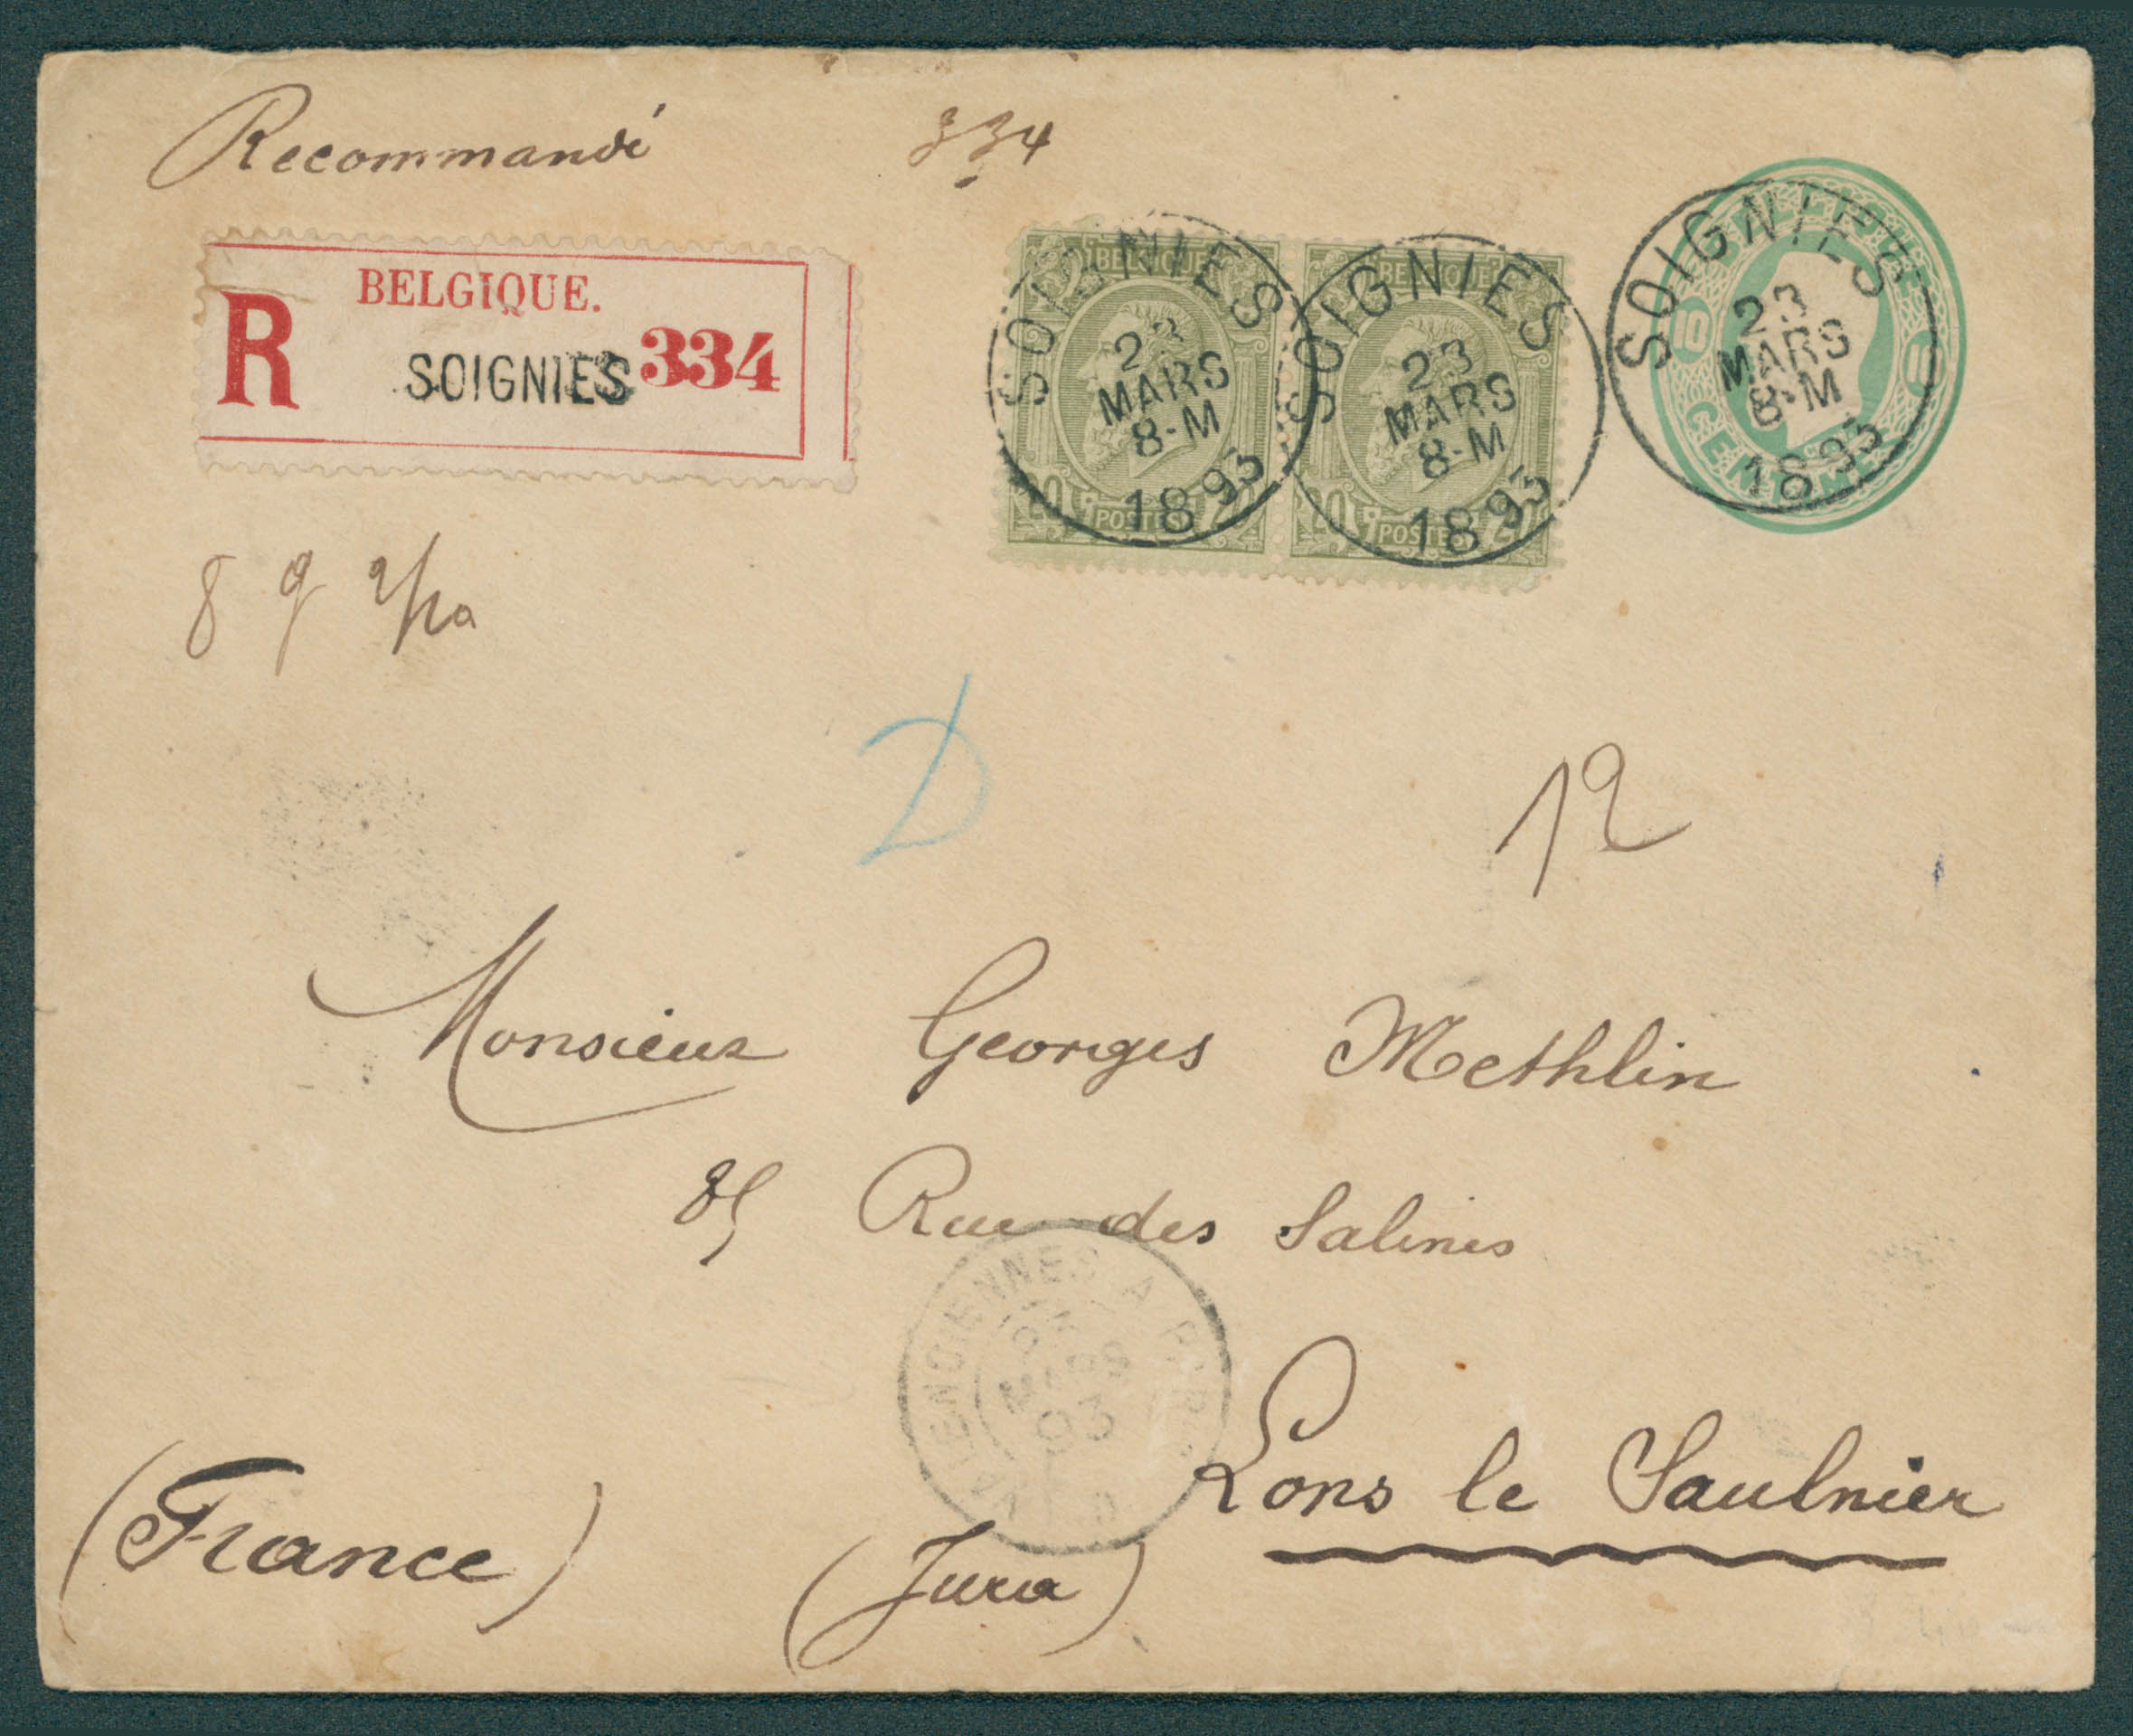 Recommandé 334
BELGIQUE.
R SOIGNIES 334
BELGIQUE
SOIGNIES
23
MARS
8-M
1893
20 POSTES 20
BELGIQUE
SOIGNIES
23
MARS
8-M
1893
20 POSTES 20
SOIGNIES
23
MARS
8-M
1893
10
CENTIMES
8 g
D
12
Monsieur Georges Methlin
85 Rue des Salines
VALENCIENNES A
23
MARS
93
Lons le Saulnier
(France) (Jura)